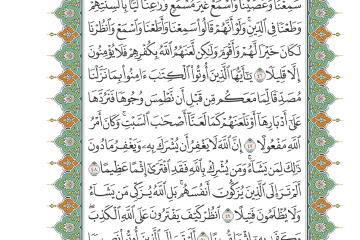 سَمِعْنَا وَعَصَيْنَا وَٱسْمَعْ غَيْرَ مُسْمَعٍ وَرَٰعِنَا لَيًّۢا بِأَلْسِنَتِهِمْ
وَطَعْنًا فِى ٱلدِّينِ ۚ وَلَوْ أَنَّهُمْ قَالُوا۟ سَمِعْنَا وَأَطَعْنَا وَٱسْمَعْ وَٱنظُرْنَا
لَكَانَ خَيْرًا لَّهُمْ وَأَقْوَمَ وَلَٰكِن لَّعَنَهُمُ ٱللَّهُ بِكُفْرِهِمْ فَلَا يُؤْمِنُونَ
إِلَّا قَلِيلًا ٤٦ يَٰٓأَيُّهَا ٱلَّذِينَ أُوتُوا۟ ٱلْكِتَٰبَ ءَامِنُوا۟ بِمَا نَزَّلْنَا
مُصَدِّقًا لِّمَا مَعَكُم مِّن قَبْلِ أَن نَّطْمِسَ وُجُوهًا فَنَرُدَّهَا
عَلَىٰٓ أَدْبَارِهَآ أَوْ نَلْعَنَهُمْ كَمَا لَعَنَّآ أَصْحَٰبَ ٱلسَّبْتِ ۚ وَكَانَ أَمْرُ
ٱللَّهِ مَفْعُولًا ٤٧ إِنَّ ٱللَّهَ لَا يَغْفِرُ أَن يُشْرَكَ بِهِۦ وَيَغْفِرُ مَا دُونَ
ذَٰلِكَ لِمَن يَشَآءُ ۚ وَمَن يُشْرِكْ بِٱللَّهِ فَقَدِ ٱفْتَرَىٰٓ إِثْمًا عَظِيمًا ٤٨
أَلَمْ تَرَ إِلَى ٱلَّذِينَ يُزَكُّونَ أَنفُسَهُم ۚ بَلِ ٱللَّهُ يُزَكِّى مَن يَشَآءُ
وَلَا يُظْلَمُونَ فَتِيلًا ٤٩ ٱنظُرْ كَيْفَ يَفْتَرُونَ عَلَى ٱللَّهِ ٱلْكَذِبَ ۖ